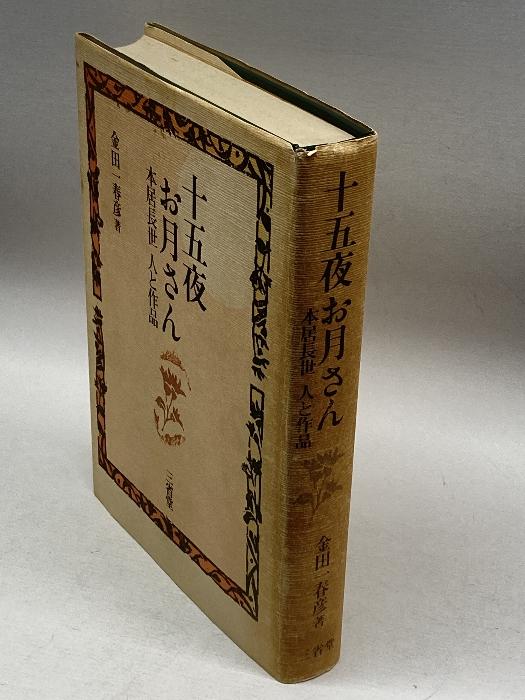 十五夜
お月さん
本居長世 人と作品
金田一春彦著
三省堂
十五夜お月さん
本居長世 人と作品
金田一春彦著
三省堂